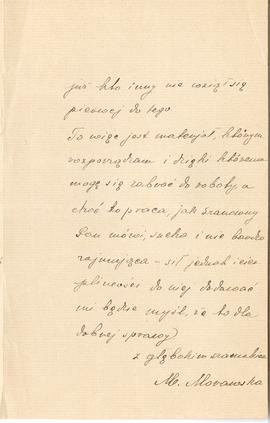 już kto inny nie wziął się
pierwej do tego
To więc jest materjał, którym
rozporządzam i dzięki któremu
mogę się zabrać do roboty a
choć to praca, jak Szanowny
Pan mówi, sucha i nie bardzo
zajmująca – sił jednak i cier-
pliwości do niej dodawać
mi będzie myśl, że to dla
dobrej sprawy
z głębokim szacunkiem
M. Morawska